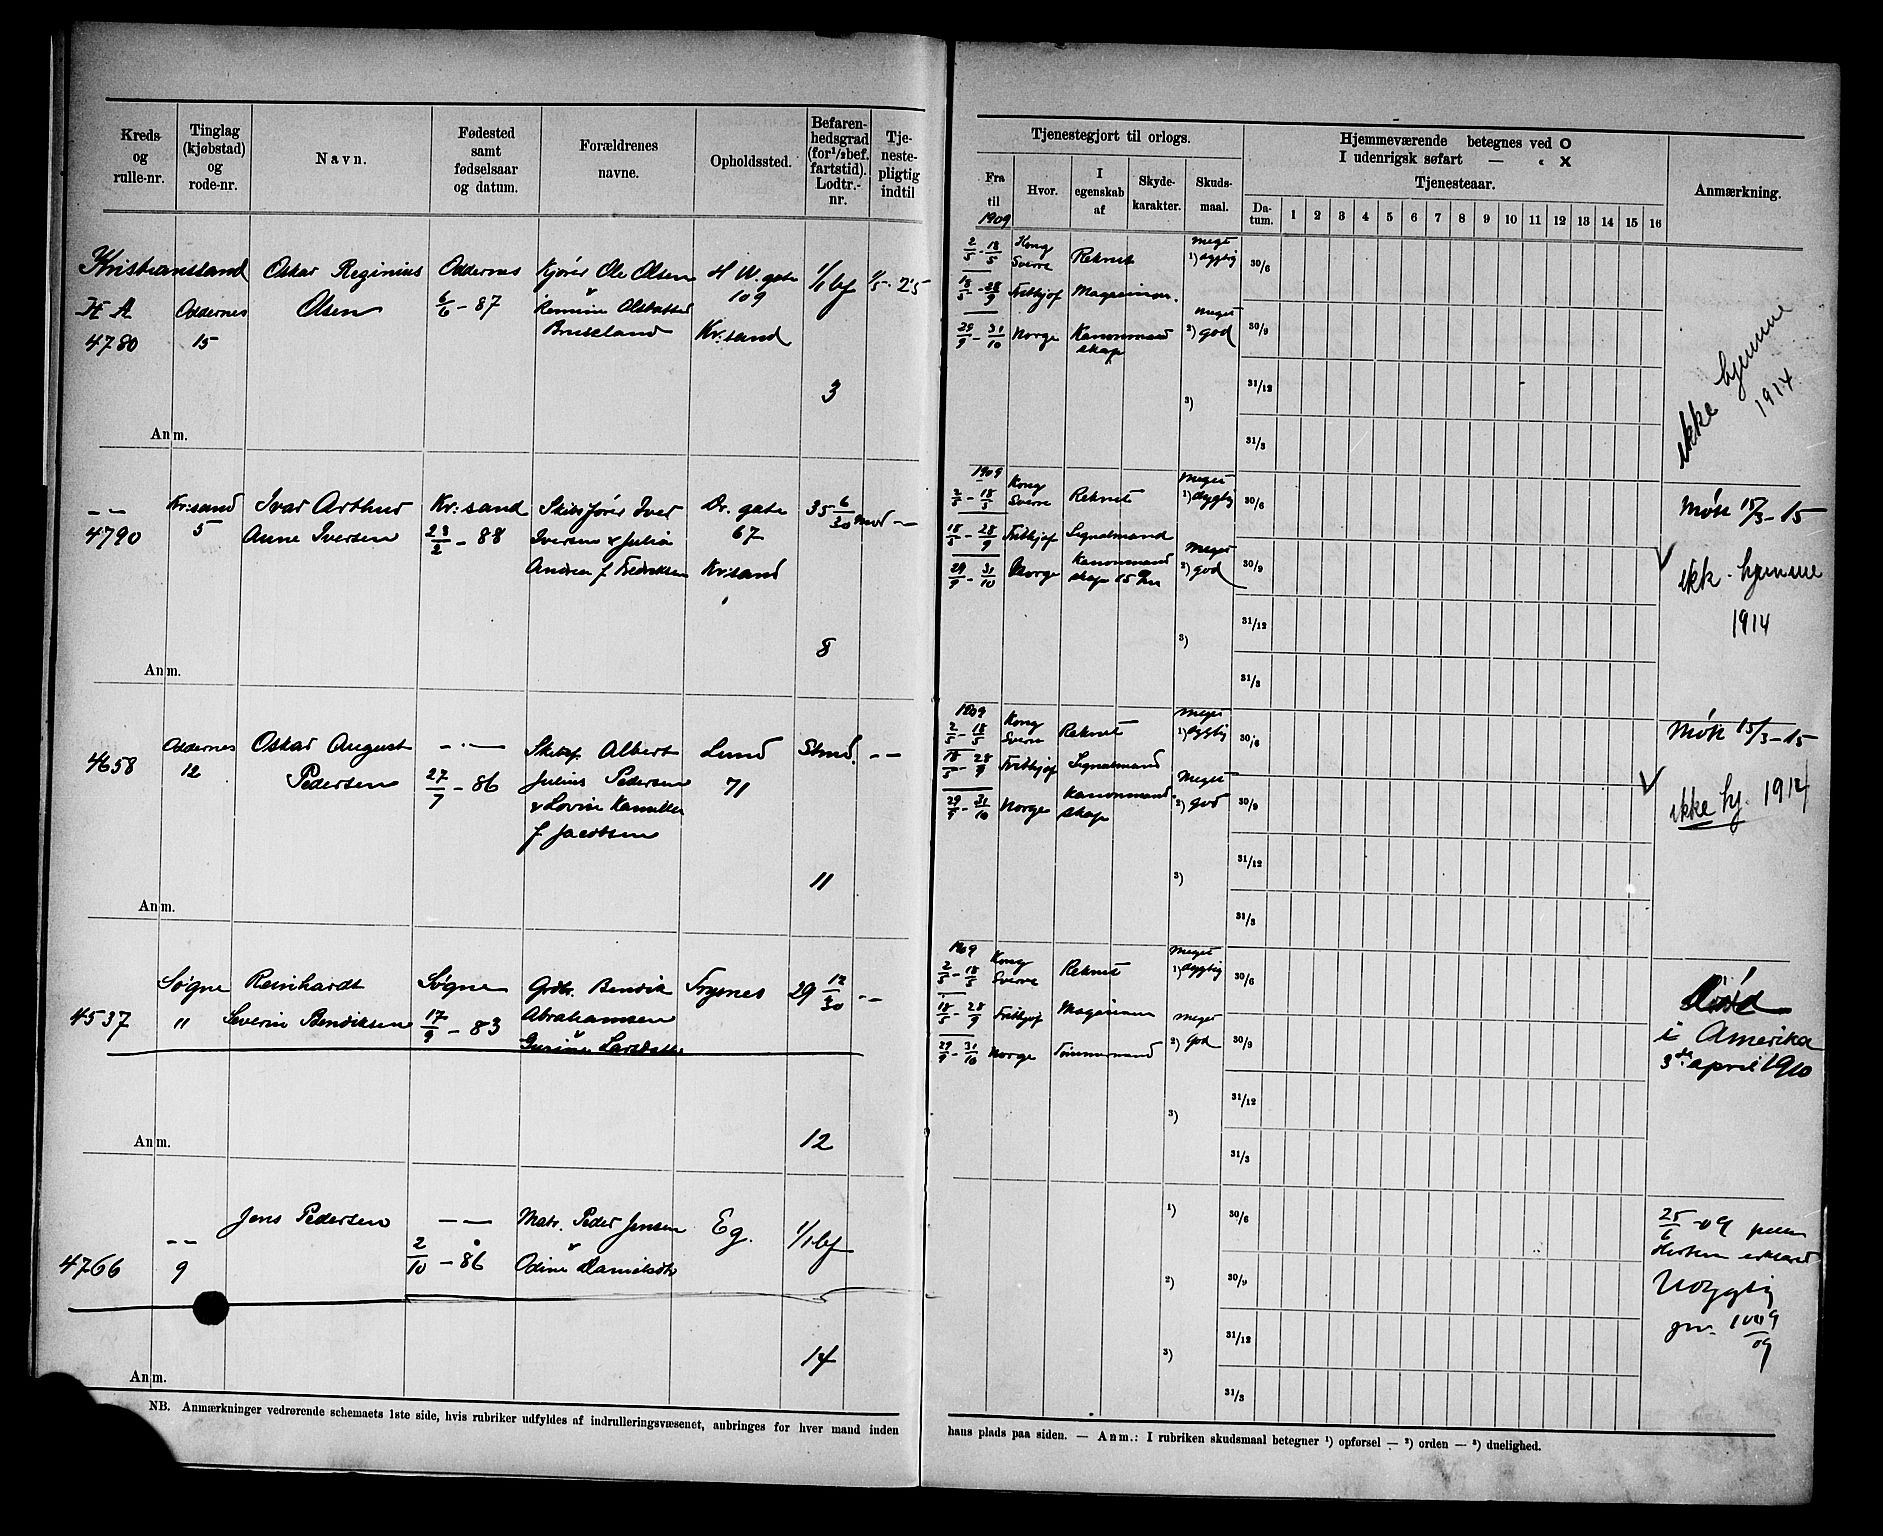 Kreds- og rulle-nr.
Tinglag (kjøbstad) og rode-nr.
Navn.
Fødested samt fødselsaar og datum.
Forældrenes navne.
Opholdssted.
Befaren-hedsgrad (for 1/1 bef. fartstid). Lodtr.-nr.
Tje-neste-pligtig indtil
Tjenestegjort til orlogs.
Fra til 1909
Hvor.
I egenskab af
Skyde-karakter.
Skuds-maal.
Hjemmeværende betegnes ved O
I udenrigsk søfart — " X
Tjenesteaar.
Da-tum. 1 2 3 4 5 6 7 8 9 10 11 12 13 14 15 16
Anmærkning.
Kristiansand
Oskar Reginius
Olsen
Oddernes
6/6 - 87
Kjører Ole Olsen
&
H W. gate
109
Kr:sand
1/1 bf
1/5 - 25
4780
Oddernes
15
3
Anm.
2/5 - 18/5 Kong Sverre Rekrut 1) meget dygtig 30/6
18/5 - 28/9 Fridtjof
29/9 - 31/10 Norge Kanonmand skap 2) meget god 30/9
31/12
3)
31/3
ikke hjemme
1914
— —
4790
Kr:sand
5
Ivar Arthur
Anne Iversen
Kr:sand
23/2 - 88
Skibsfører Iver
Iversen & Julia
Andrea f Fredriksen
Dr. gate
67
Kr:sand
35 6/30 md
— —
8
Anm.
1909
2/5 - 18/5 Kong Sverre Rekrut 1) Meget dygtig 30/6
18/5 - 28/9 Fridtjof Signalmand
29/9 - 31/10 Norge Kanonmand skap 2) Meget god 30/9
31/12
3)
31/3
Møn 15/3 - 15
ikk. hjemme
1914
4658
Oddernes
12
Oskar August
Pedersen
— · —
27/7 - 86
Skibsf. Albert
Julius Pedersen
& Lovise Kamilla
f Jacobsen
Lund
71
— —
11
Anm.
1909
2/5 - 18/5 Kong Sverre Rekrut 1) Meget dygtig 30/6
18/5 - 28/9 Fridtjof Signalmand
29/9 - 31/10 Norge Kanonmand skap 2) Meget god 30/9
31/12
3)
31/3
Møn 15/3 - 15
ikke hj. 1914
4537
Søgne
"
Reinhardt
Severin Bendiksen
Søgne
17/9 - 83
Grdbr. Bendik
Abrahamsen
29 12/30
— —
12
Anm.
1909
2/5 - 18/5 Kong Sverre Rekrut 1) Meget dygtig 30/6
18/5 - 28/9 Fridtjof
29/9 - 31/10 Norge Tømmermand 2) Meget god 30/9
31/12
3)
31/3
Død
i Amerika
3die april 1910
4766
— —
9
Jens Pedersen
— —
2/10 - 86
Matr. Peder Jensen
&
Odine Danielsdtr
Eg.
1/1 bf
14
Anm.
1) 30/6
2) 30/9
31/12
3)
31/3
25/6 - 09
erklæret
Udygtig
NB. Anmærkninger vedrørende schemaets 1ste side, hvis rubriker udfyldes af indrulleringsvæsenet, anbringes for hver mand inden
hans plads paa siden. — Anm.: I rubriken skudsmaal betegner 1) opførsel — 2) orden — 3) duelighed.